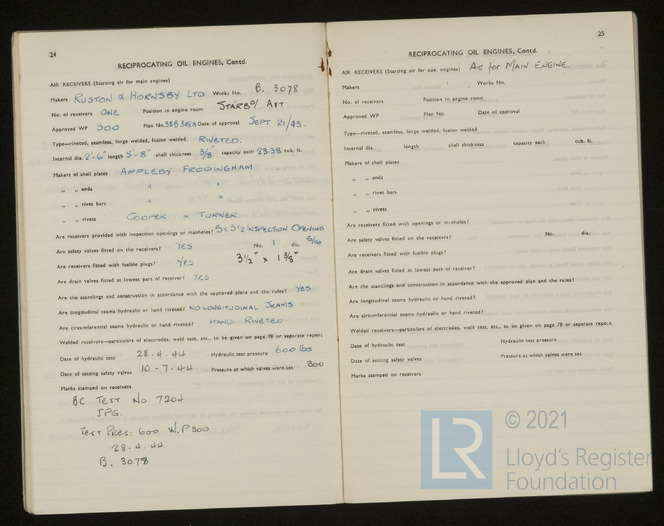 24
RECIPROCATING OIL ENGINES, Contd.
AIR RECEIVERS (Starting air for main engines)
Makers RUSTON & HORNSBY LTD Works No. B. 3078
No. of receivers ONE Position in engine room STARBD/ AFT
Approved WP 300 Plan No. 38B308A Date of approval SEPT 21/43.
Type—riveted, seamless, forge welded, fusion welded RIVETED.
Internal dia. 2'-6" length 5'-8" shell thickness 3/8" capacity each 23.38 cub. ft.
Makers of shell plates APPLEBY FRODINGHAM
„ „ ends " "
„ „ rivet bars " "
„ „ rivets COOPER & TURNER
Are receivers provided with inspection openings or manholes? 5 x 3½ INSPECTION OPENING
Are safety valves fitted on the receivers? YES No. 1 dia. 5/16
Are receivers fitted with fusible plugs? YES 3½" x 1⅜"
Are drain valves fitted at lowest part of receiver? YES
Are the scantlings and construction in accordance with the approved plans and the rules? YES
Are longitudinal seams hydraulic or hand riveted? NO LONGITUDINAL SEAMS
Are circumferential seams hydraulic or hand riveted? HAND RIVETED
Welded receivers—particulars of electrodes, weld test, etc., to be given on page 78 or separate report
Date of hydraulic test 28.4.44 Hydraulic test pressure 600 lbs
Date of setting safety valves 10.7.44 Pressure at which valves were set 300
Marks stamped on receivers
BC TEST No 7204
JPG.
TEST PRES: 600 W.P 300
28.4.44
B. 3078
25
RECIPROCATING OIL ENGINES, Contd.
AIR RECEIVERS (Starting air for aux. engines) AS for MAIN ENGINE.
Makers Works No.
No. of receivers Position in engine room
Approved WP Plan No. Date of approval
Type—riveted, seamless, forge welded, fusion welded
Internal dia. length shell thickness capacity each cub. ft.
Makers of shell plates
„ „ ends
„ „ rivet bars
„ „ rivets
Are receivers fitted with openings or manholes?
Are safety valves fitted on the receivers? No. dia.
Are receivers fitted with fusible plugs?
Are drain valves fitted at lowest part of receiver?
Are the scantlings and construction in accordance with the approved plan and the rules?
Are longitudinal seams hydraulic or hand riveted?
Are circumferential seams hydraulic or hand riveted?
Welded receivers—particulars of electrodes, weld test, etc., to be given on page 78 or separate report
Date of hydraulic test Hydraulic test pressure
Date of setting safety valves Pressure at which valves were set
Marks stamped on receivers
LR
© 2021
Lloyd's Register
Foundation